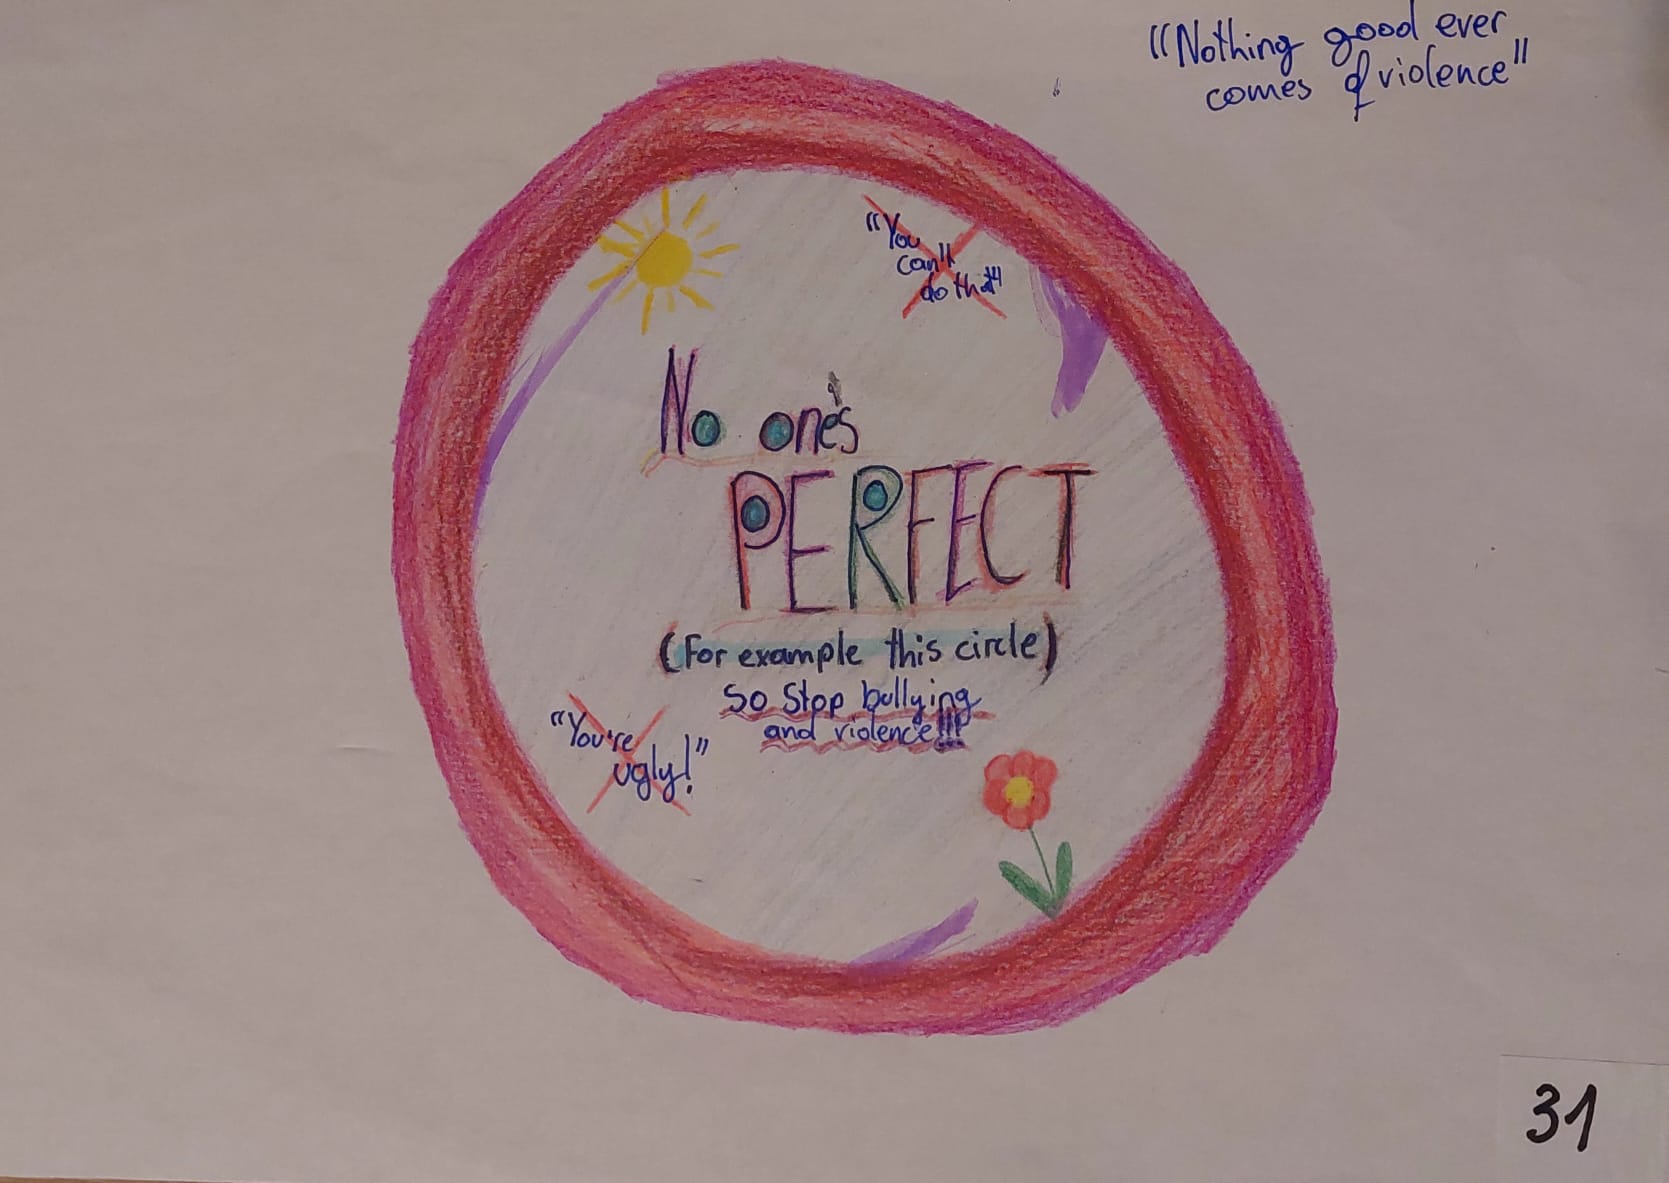 "Nothing good ever
comes of violence"
"You
can't
do that"
No one's
PERFECT
(For example this circle)
So Stop bullying
and violence!!!
"You're
ugly!"
31